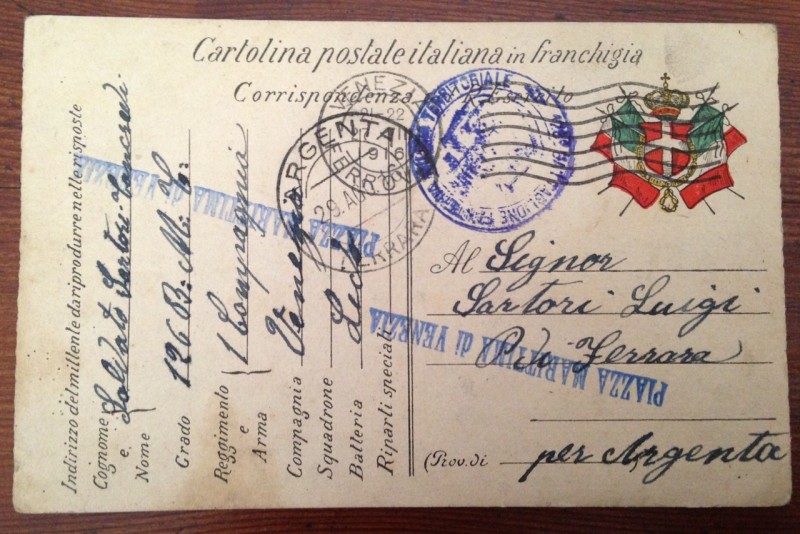 Cartolina postale italiana in franchigia
Corrispondenza
VENEZIA
22
916
ARGENTA
FERROVIA
29.
FERRARA
TERRITORIALE
PIAZZA MARITTIMA di VENEZIA
PIAZZA MARITTIMA di VENEZIA
Al Signor
Sartori Luigi
Ferrara
(Prov. di per Argenta
Indirizzo del mittente da riprodurre nelle risposte
Cognome e Nome Soldato Sartori
Grado 126 B. M. T.
Reggimento e Arma 1 Compagnia
Compagnia Venezia
Squadrone
Batteria Lido
Riparti speciali